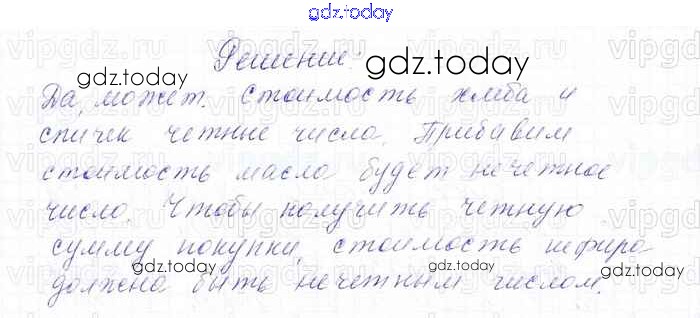 gdz.today
Решение:
Да, может. Стоимость хлеба и
спичек четные числа. Прибавим
стоимость масла будет нечетное
число. Чтобы получить четную
сумму покупки, стоимость кефира
должна быть нечетным числом.
gdz.today
gdz.today
gdz.today
gdz.today
gdz.today
gdz.today